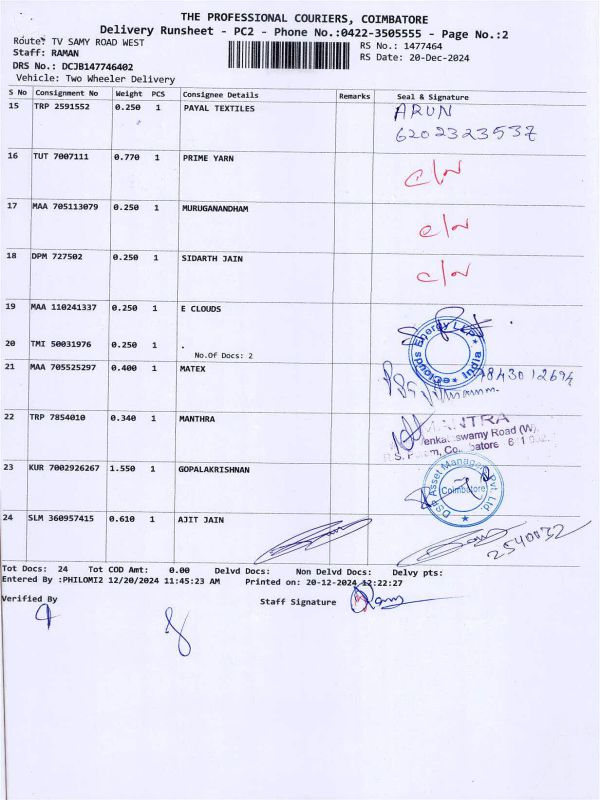 THE PROFESSIONAL COURIERS, COIMBATORE
Delivery Runsheet - PC2 - Phone No.:0422-3505555 - Page No.:2
Route: TV SAMY ROAD WEST
RS No.: 1477464
Staff: RAMAN
RS Date: 20-Dec-2024
DRS No.: DCJB147746402
Vehicle: Two Wheeler Delivery
S No Consignment No Weight PCS Consignee Details Remarks Seal & Signature
15 TRP 2591552 0.250 1 PAYAL TEXTILES ARUN
6202323537
16 TUT 7007111 0.770 1 PRIME YARN c/w
17 MAA 705113079 0.250 1 MURUGANANDHAM c/w
18 DPM 727502 0.250 1 SIDARTH JAIN c/w
19 MAA 110241337 0.250 1 E CLOUDS
eClouds Energy LLP India
20 TMI 50031976 0.250 1 .
No.Of Docs: 2
21 MAA 705525297 0.400 1 MATEX 9843012694
22 TRP 7854010 0.340 1 MANTHRA
MANTRA
swamy Road (W),
R.S. Coimbatore
23 KUR 7002926267 1.550 1 GOPALAKRISHNAN
Asset Pvt. Ltd. Coimbatore
24 SLM 360957415 0.610 1 AJIT JAIN
2540032
Tot Docs: 24 Tot COD Amt: 0.00 Delvd Docs: Non Delvd Docs: Delvy pts:
Entered By :PHILOMI2 12/20/2024 11:45:23 AM Printed on: 20-12-2024 12:22:27
Verified By
Staff Signature